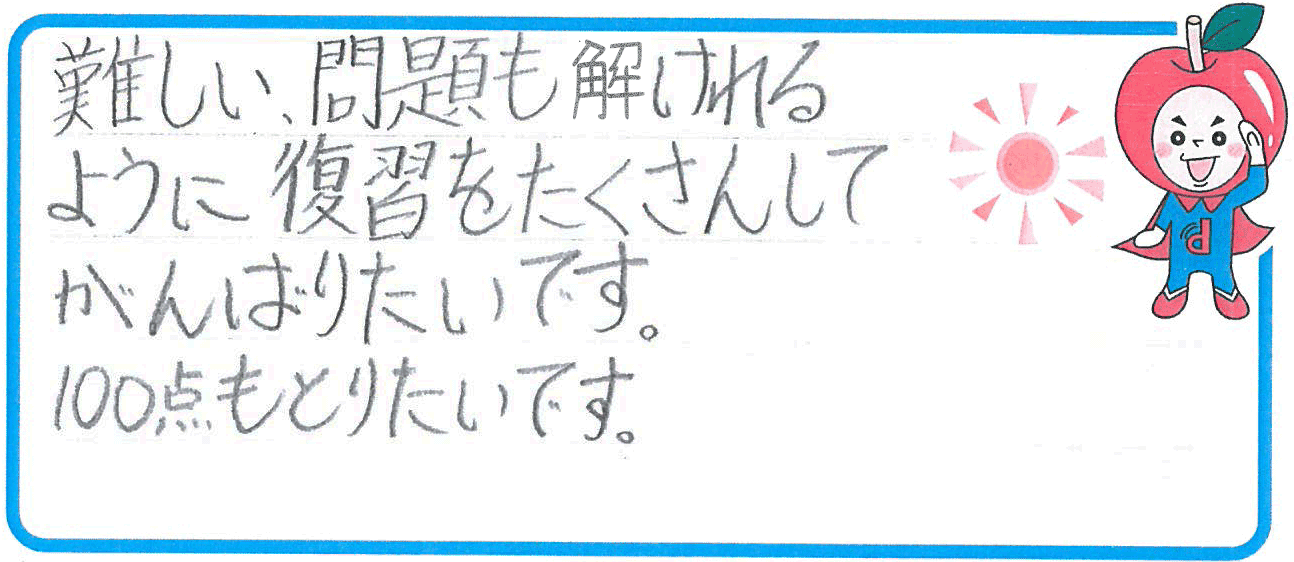 難しい、問題も解けれる
ように復習をたくさんして
がんばりたいです。
100点もとりたいです。